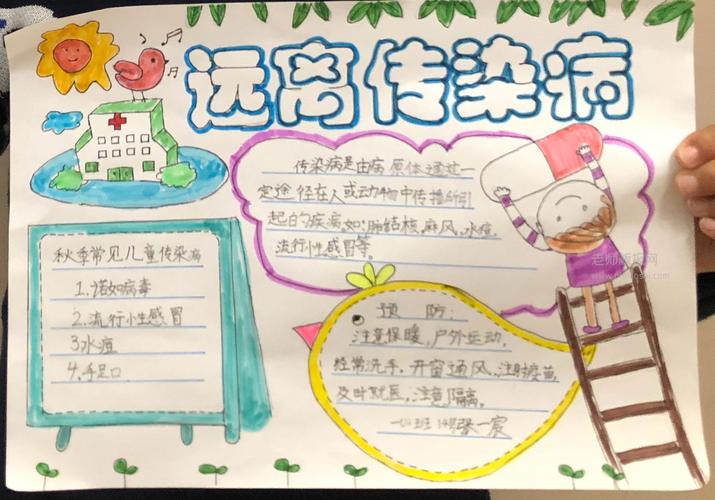 远离传染病
传染病是由病原体通过一
定途径在人或动物中传播所引
起的疾病如:肺结核、麻风、水痘,
流行性感冒等。
秋季常见儿童传染病
1.诺如病毒
2.流行性感冒
3水痘
4.手足口
预防:
注意保暖,户外运动,
经常洗手。开窗通风、注射疫苗,
及时就医,注意隔离。
张一宸